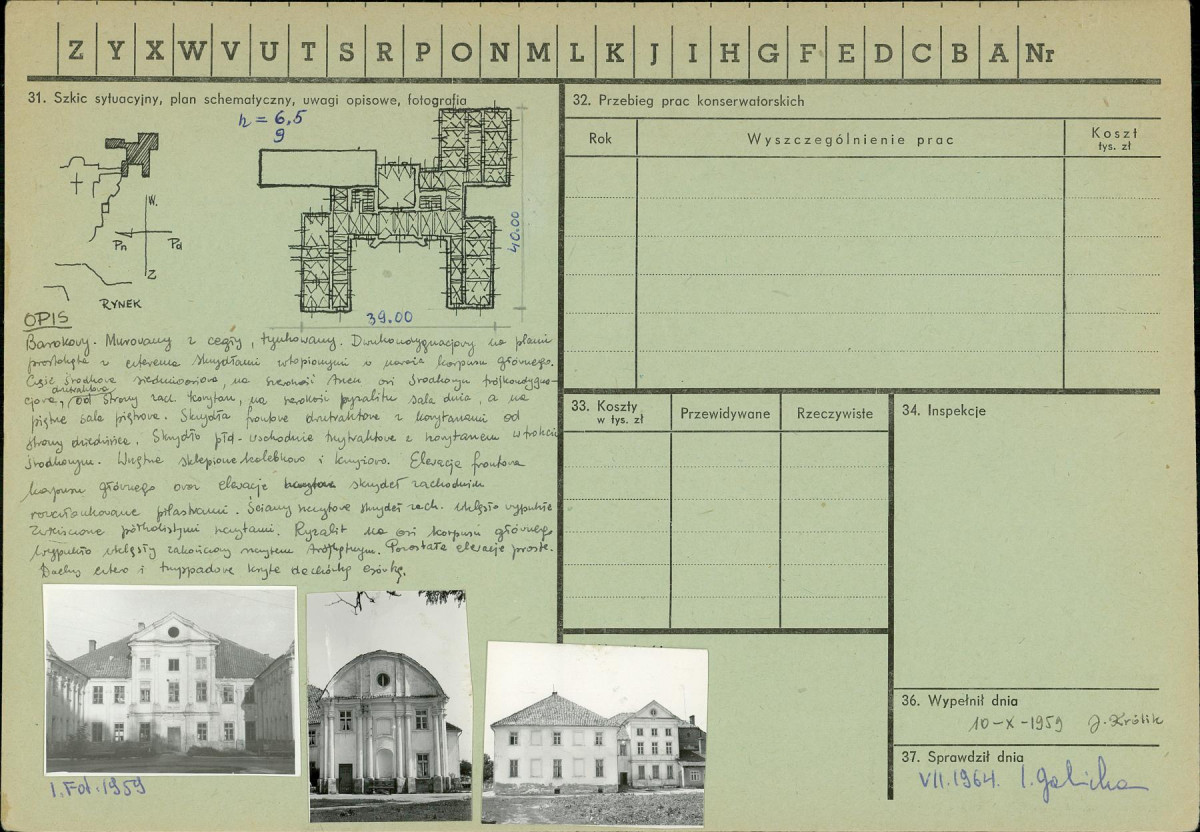 Z Y X W V U T S R P O N M L K J I H G F E D C B A Nr
31. Szkic sytuacyjny, plan schematyczny, uwagi opisowe, fotografia
h = 6,5
9
W.
Pn Pd
Z
RYNEK
40.00
39.00
OPIS
Barokowy. Murowany z cegły, tynkowany. Dwukondygnacjowy na planie
prostokąta z czterema skrzydłami wtopionymi w naroża korpusu głównego.
Część środkowa siedmioosiowa, na szerokość trzech osi środkowych trójkondygna-
cjowa, dwutraktowa, od strony zach. korytarz, na szerokość ryzalitu sala dolna, a na
piętrze sala piętrowa. Skrzydła frontowe dwutraktowe z korytarzami od
strony dziedzińca. Skrzydło płd.-wschodnie trzytraktowe z korytarzem w trakcie
środkowym. Wnętrza sklepione kolebkowo i krzyżowo. Elewacja frontowa
korpusu głównego oraz elewacje szczytowe skrzydeł zachodnich
rozczłonkowane pilastrami. Ściany szczytowe skrzydeł zach. wklęsło wypukłe
zwieńczone półkolistymi szczytami. Ryzalit na osi korpusu głównego
wypukło wklęsły zakończony szczytem trójkątnym. Pozostałe elewacje proste.
Dachy cztero i trzyspadowe kryte dachówką esówką.
I. Fot. 1959
32. Przebieg prac konserwatorskich
Rok Wyszczególnienie prac Koszt
tys. zł
33. Koszty
w tys. zł Przewidywane Rzeczywiste
34. Inspekcje
36. Wypełnił dnia
10-X-1959 J. Królik
37. Sprawdził dnia
VII.1964. I. Galicka